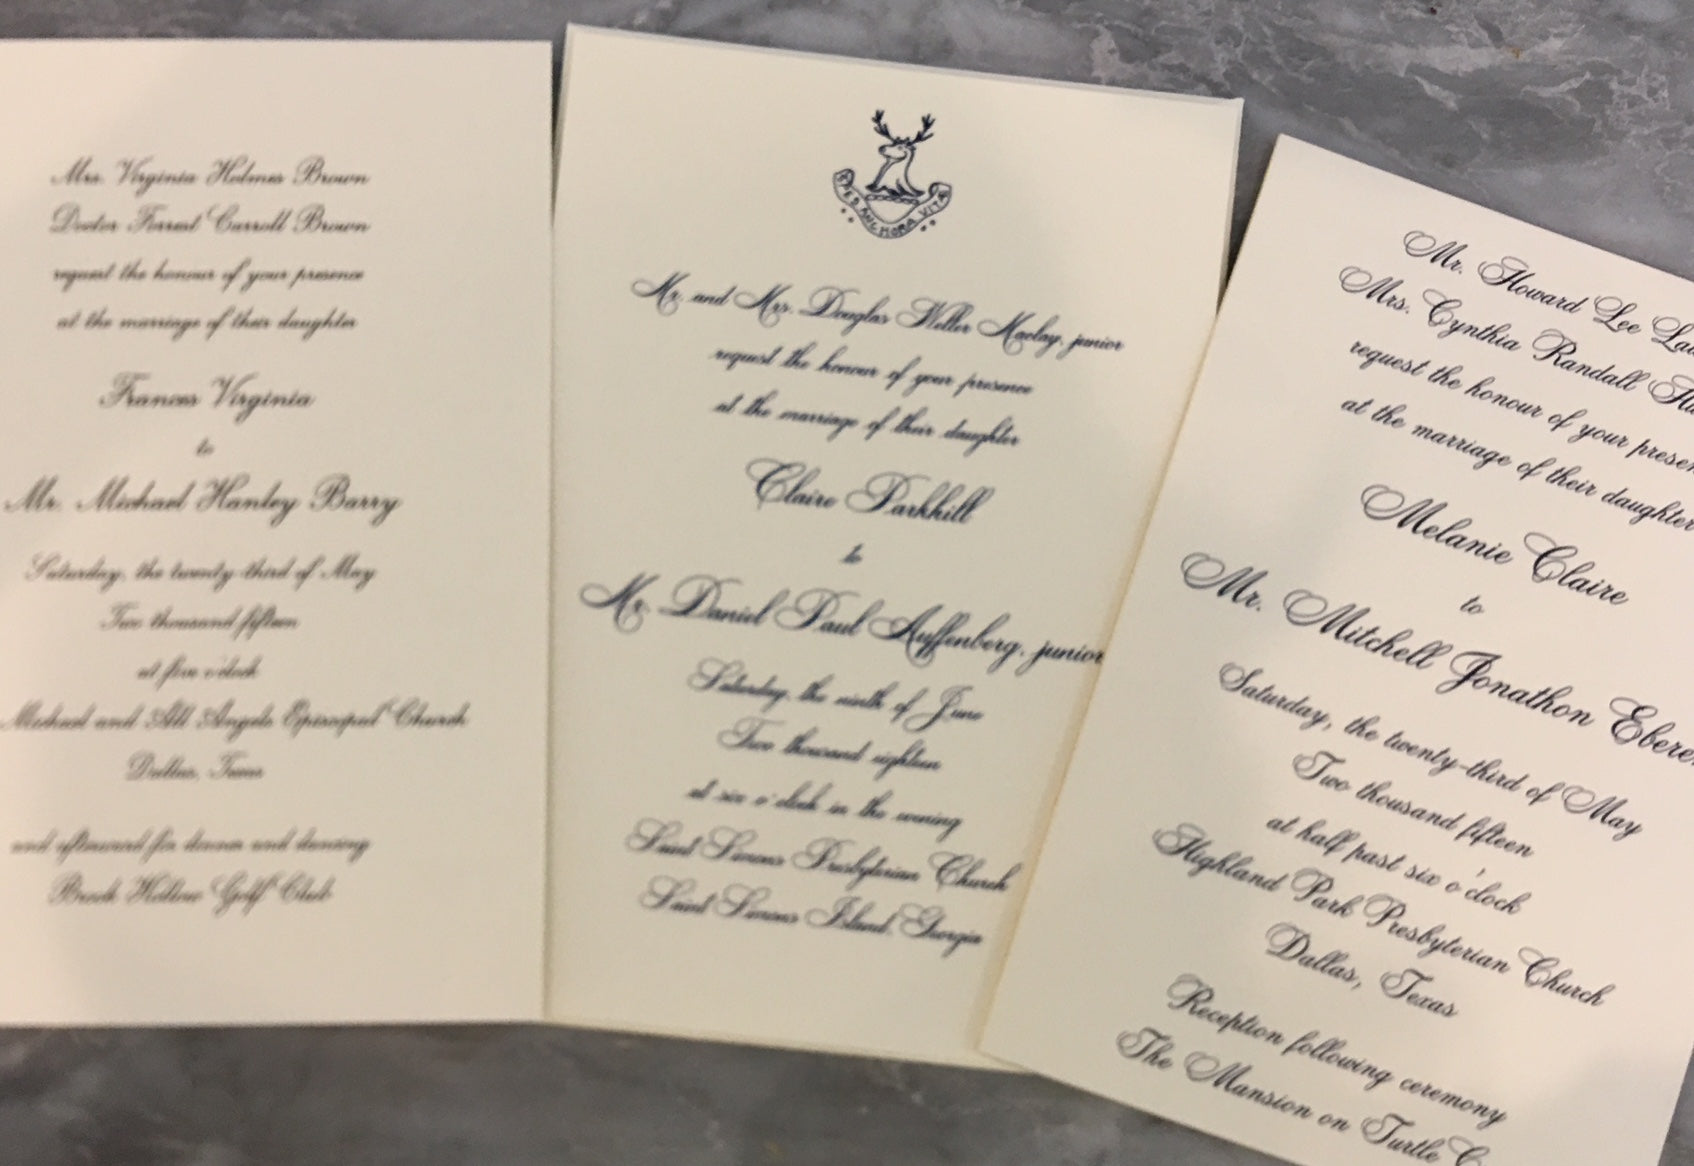 Mrs. Virginia Holmes Brown
Doctor Forrest Carroll Brown
request the honour of your presence
at the marriage of their daughter
Frances Virginia
to
Mr. Michael Hanley Barry
Saturday, the twenty-third of May
Two thousand fifteen
at five o'clock
Michael and All Angels Episcopal Church
Dallas, Texas
and afterward for dinner and dancing
Brook Hollow Golf Club
SPES ANCHORA VITA
Mr. and Mrs. Douglas Weller Maclay, junior
request the honour of your presence
at the marriage of their daughter
Claire Parkhill
to
Mr. Daniel Paul Auffenberg, junior
Saturday, the ninth of June
Two thousand eighteen
at six o'clock in the evening
Saint Simons Presbyterian Church
Saint Simons Island, Georgia
Mr. Howard Lee
Mrs. Cynthia Randall
request the honour of your
at the marriage of their daughter
Melanie Claire
to
Mr. Mitchell Jonathon
Saturday, the twenty-third of May
Two thousand fifteen
at half past six o'clock
Highland Park Presbyterian Church
Dallas, Texas
Reception following ceremony
The Mansion on Turtle